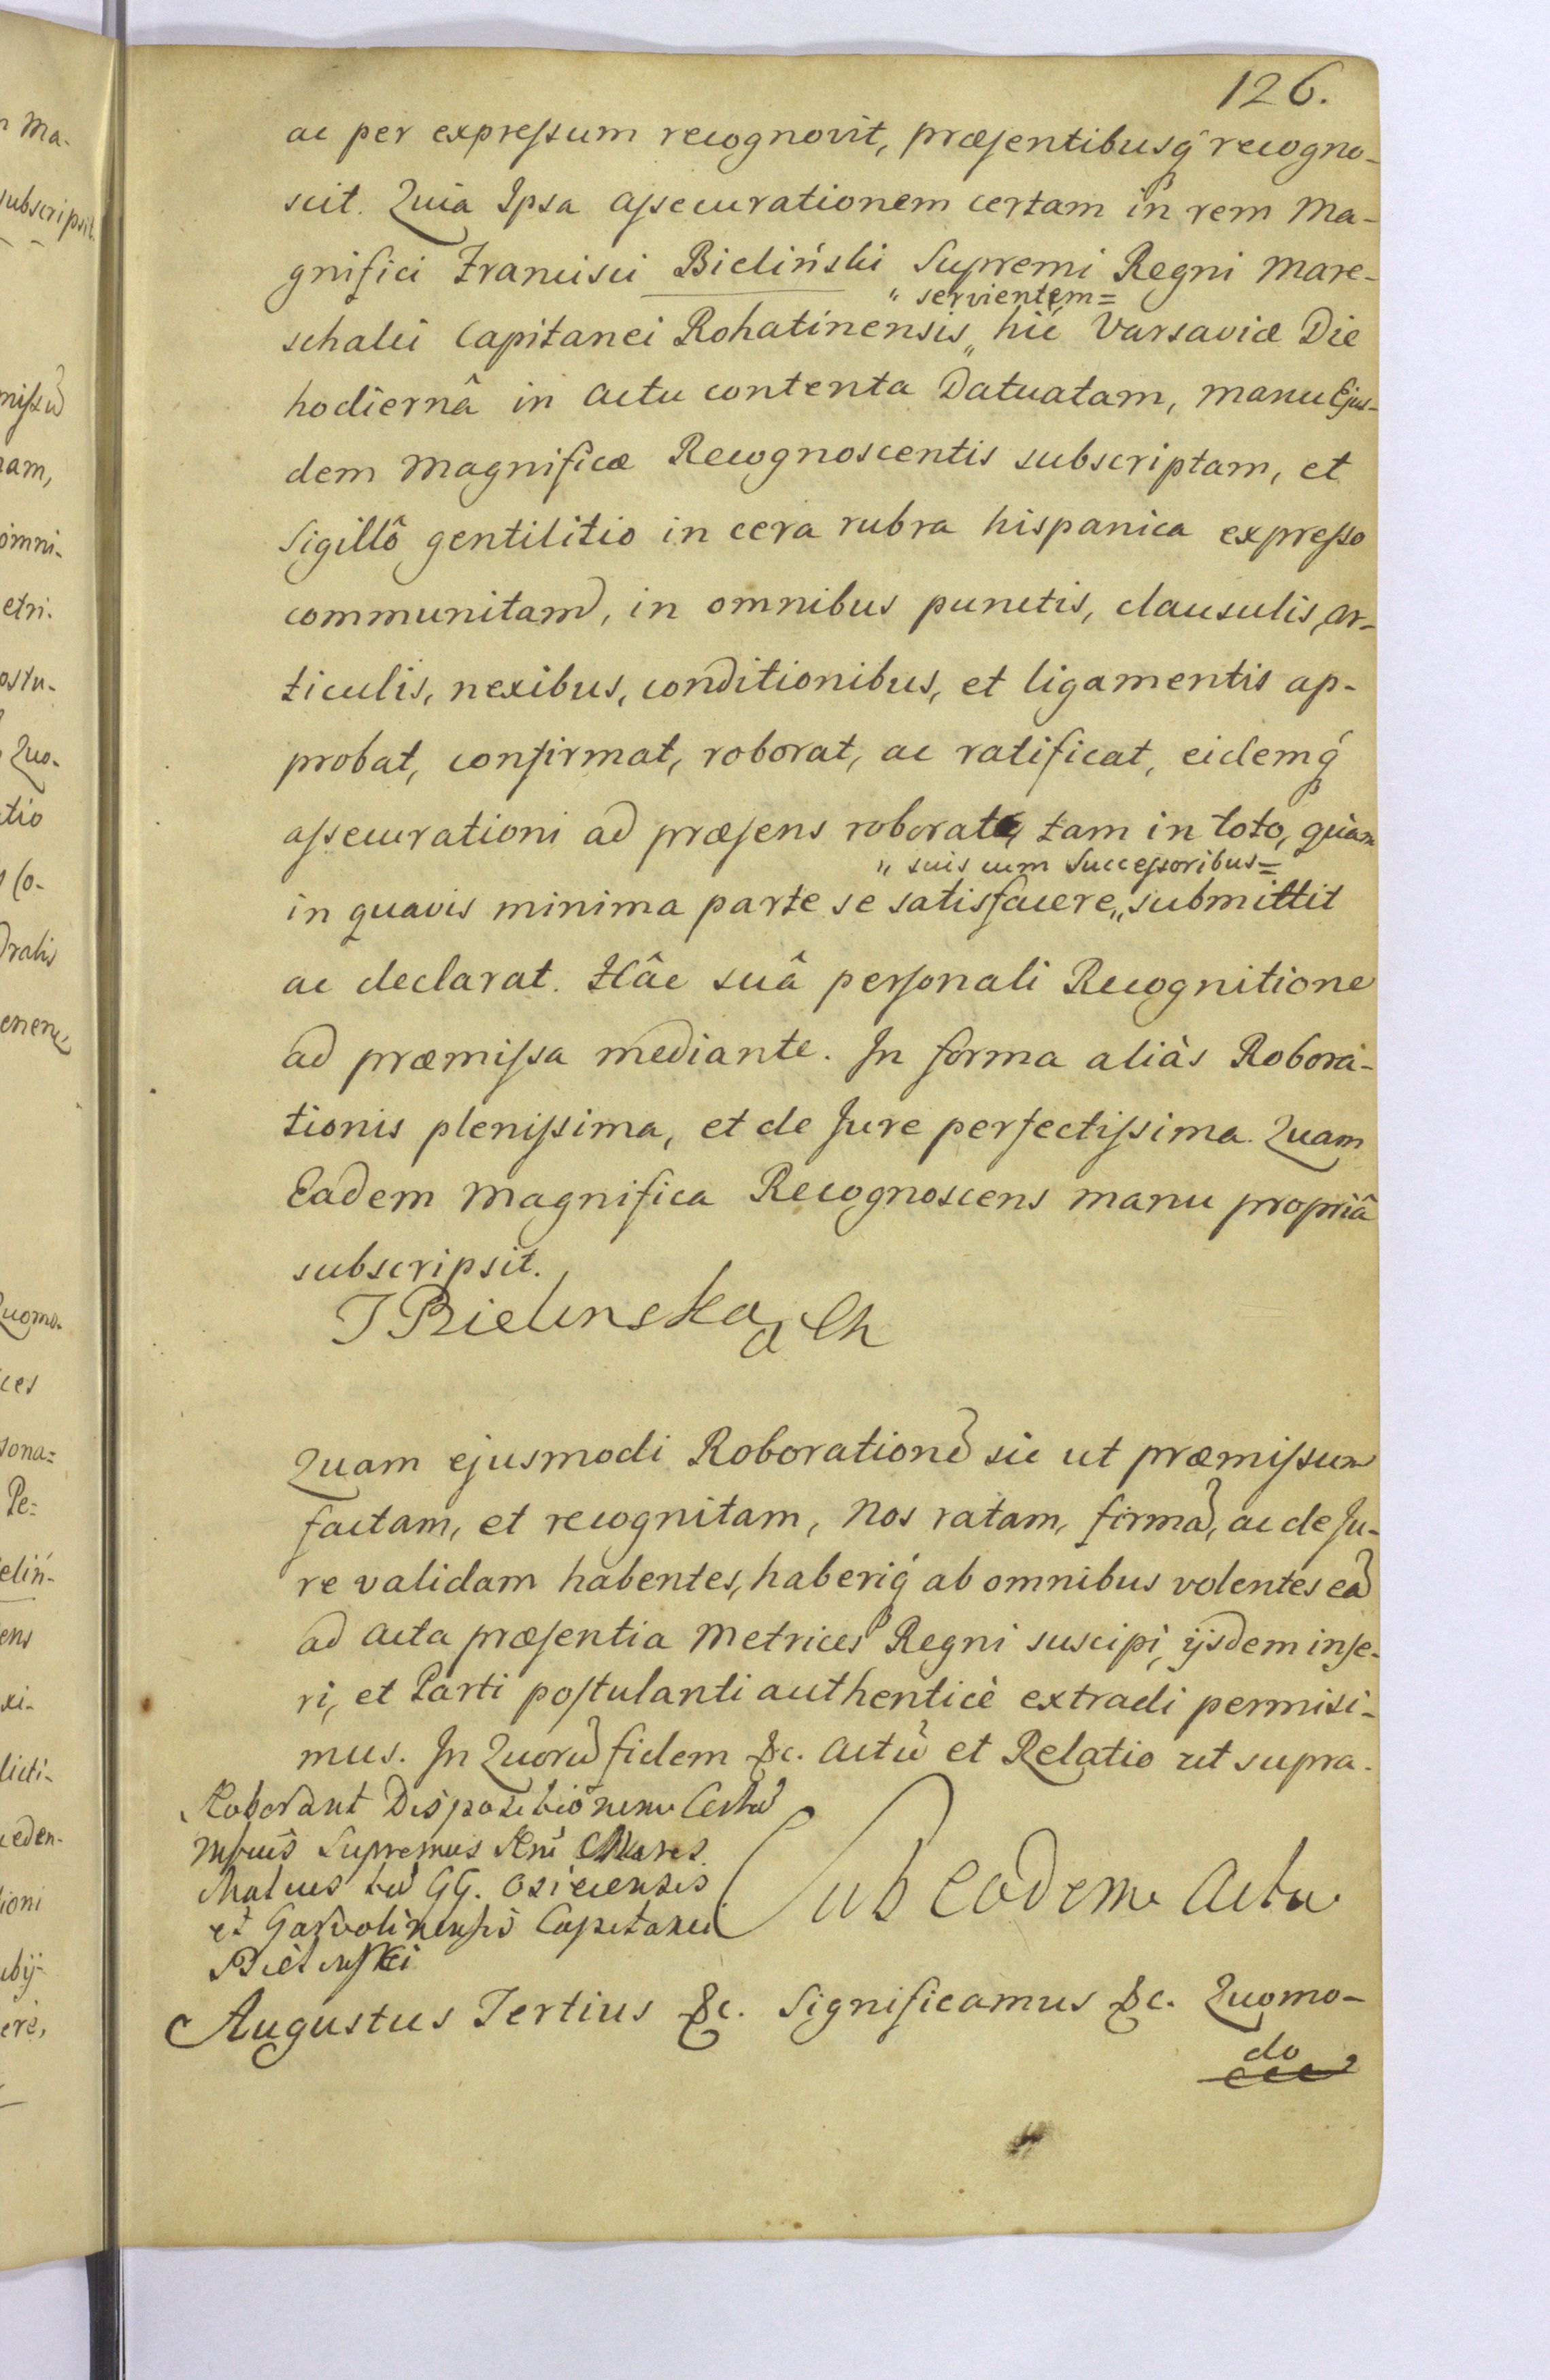 126.
ac per expressum recognovit, præsentibusq́ recogno-
scit. Quia Ipsa assecurationem certam in rem Ma-
gnifici Francisci Bieliński Supremi Regni Mare-
" servientem=
schalci Capitanei Rohatinensis„ hîc Varsaviæ Die
hodiernâ in actu contenta Datuatam, manu Ejus-
dem Magnificæ Recognoscentis subscriptam, et
Sigillô gentilitio in cera rubra hispanica expresso
communitam, in omnibus punctis, clausulis, ar-
ticulis, nexibus, conditionibus, et ligamentis ap-
probat, confirmat, roborat, ac ratificat, eidemq́
assecurationi ad præsens roboratæ, tam in toto, quàm
" suis cum Successoribus=
in quavis minima parte se satisfacere„ submittit
ac declarat. Hâc suâ personali Recognitione
ad præmissa mediante. In forma aliàs Robora-
tionis plenissima, et de Jure perfectissima. Quam
Eadem Magnifica Recognoscens manu propriâ
subscripsit.
T Bielinska
Quam ejusmodi Roborationē sic ut præmissum
factam, et recognitam, Nos ratam, firmā, ac de Ju-
re validam habentes, haberiq́ ab omnibus volentes eā
ad Acta præsentia Metrices Regni suscipi, ijsdem inse-
ri, et Parti postulanti authenticè extradi permisi-
mus. In Quorū fidem &c. Actū et Relatio ut supra.
Roborant Dispositionem
Supremus Mares.
GG. Osiecensis
et Garvolinensis Capitanei
Bielinski
Sub Eodem Actu
Augustus Tertius &c. Significamus &c. Quomo-
do
ni Ma-
subscripsit.
missū
nam,
omni-
etri-
ostu-
Quo-
atio
s Co-
Dralis
enene,
Quomo-
ices
sona=
Pe=
eliń-
ens
xi-
licti-
ceden-
tioni
ubij-
erè,